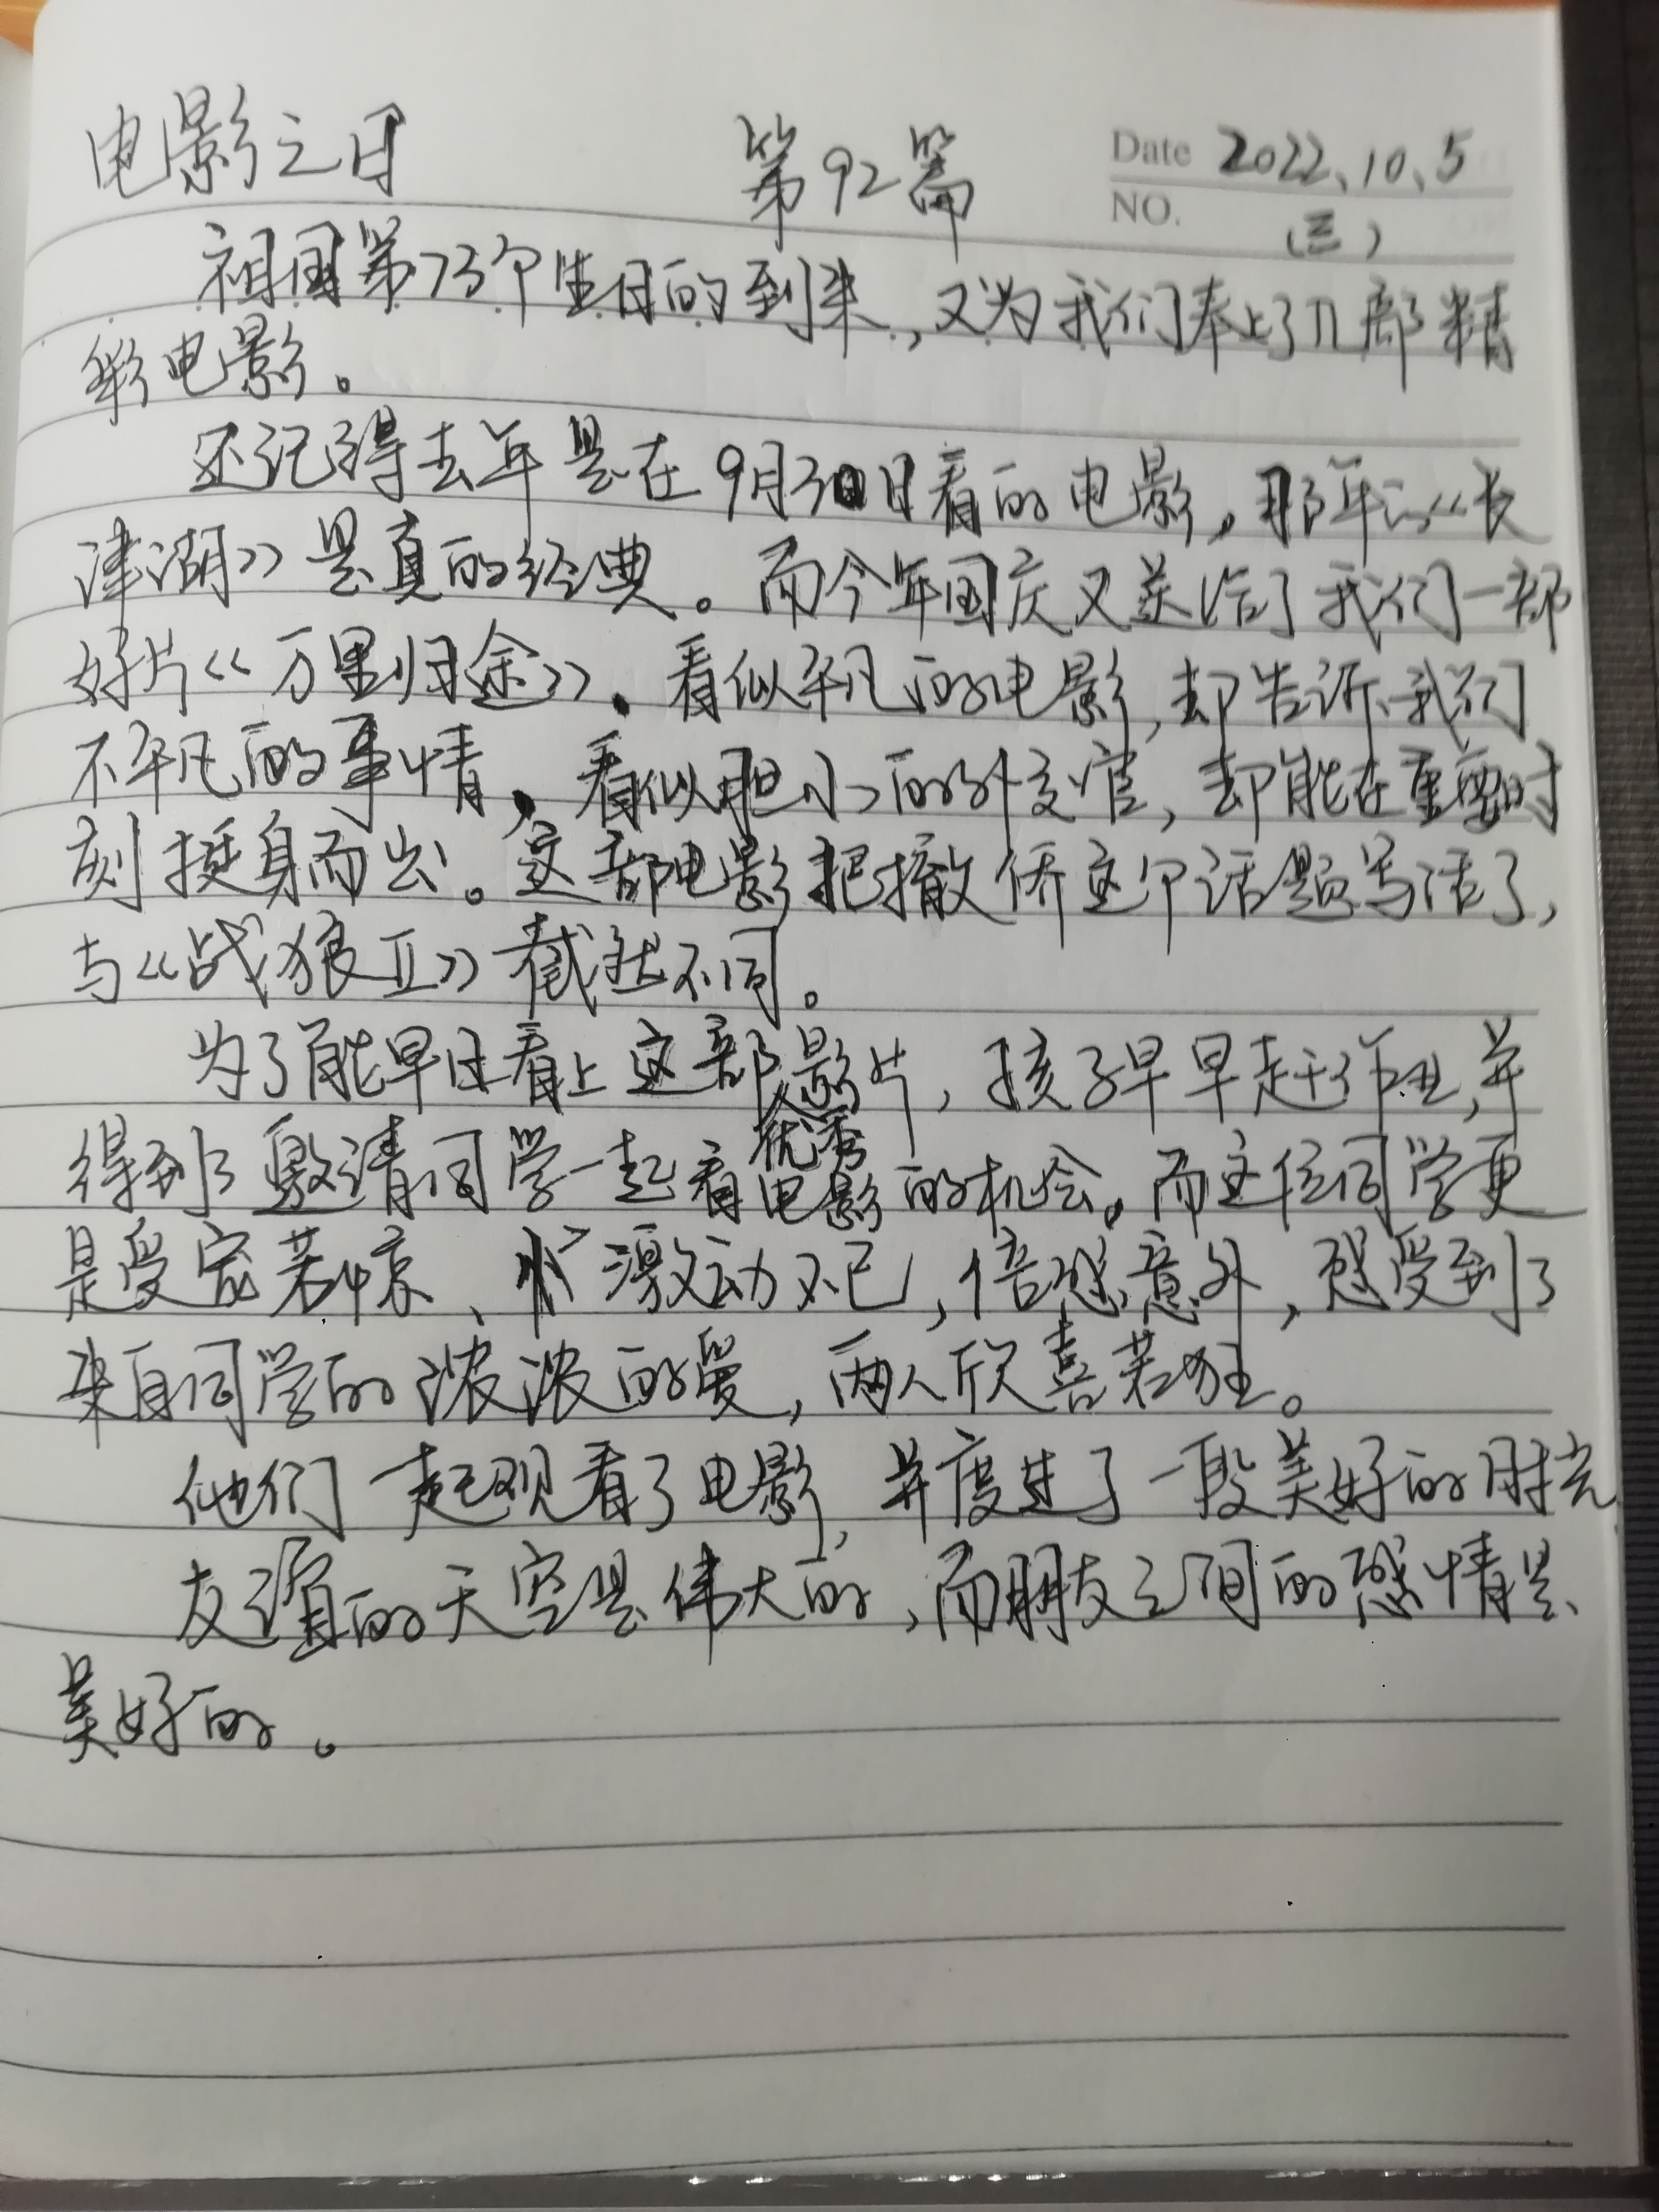 电影之日 第92篇 Date 2022.10.5
NO. (三)
祖国第73个生日的到来,又为我们奉上了几部精
彩电影。
还记得去年是在9月30日看的电影,那年的《长
津湖》是真的经典。而今年国庆又送给了我们一部
好片《万里归途》。看似平凡的电影,却告诉我们
不平凡的事情,看似胆小的外交官,却能在重要时
刻挺身而出。这部电影把撤侨这个话题写活了,
与《战狼Ⅱ》截然不同。
为了能早日看上这部影片,孩子早早赶作业,并
优秀
得到了邀请同学一起看电影的机会。而这位同学更
是受宠若惊、激动不已,倍感意外,感受到了
来自同学的浓浓的爱,两人欣喜若狂。
他们一起观看了电影,并度过了一段美好的时光
友谊的天空是伟大的,而朋友之间的感情是
美好的。